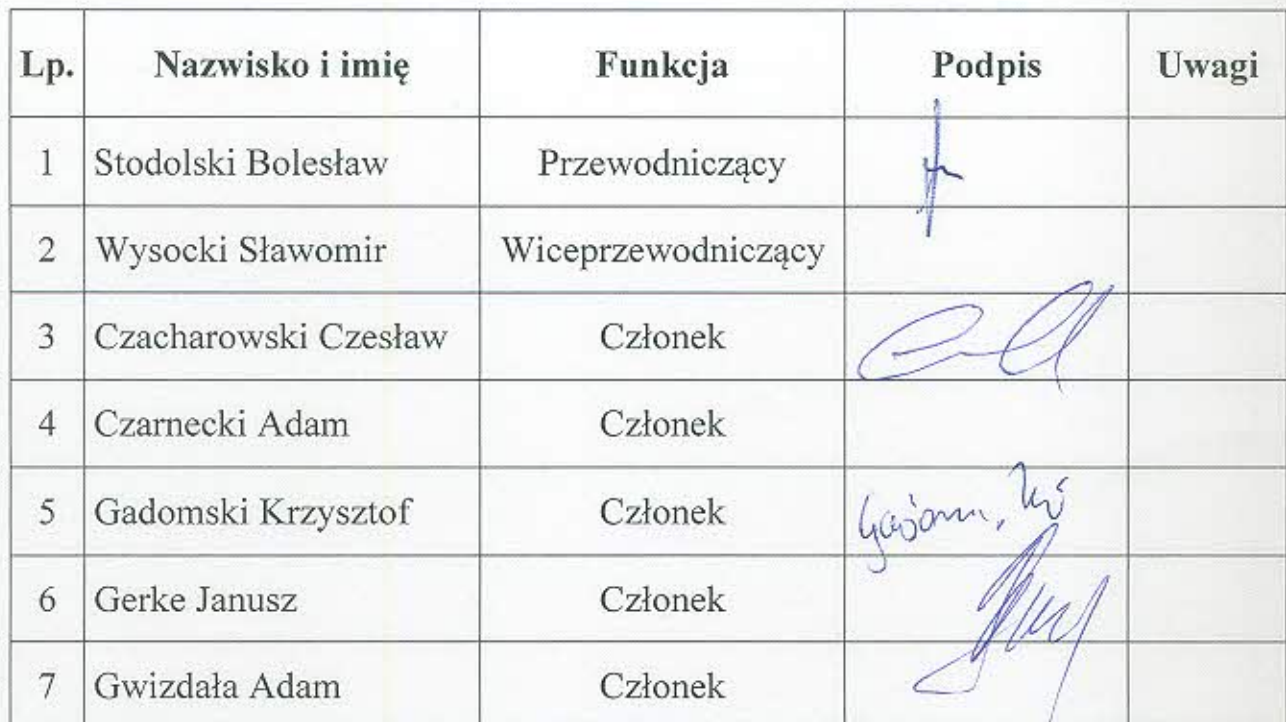 Lp. Nazwisko i imię Funkcja Podpis Uwagi
1 Stodolski Bolesław Przewodniczący
2 Wysocki Sławomir Wiceprzewodniczący
3 Czacharowski Czesław Członek
4 Czarnecki Adam Członek
5 Gadomski Krzysztof Członek
6 Gerke Janusz Członek
7 Gwizdała Adam Członek